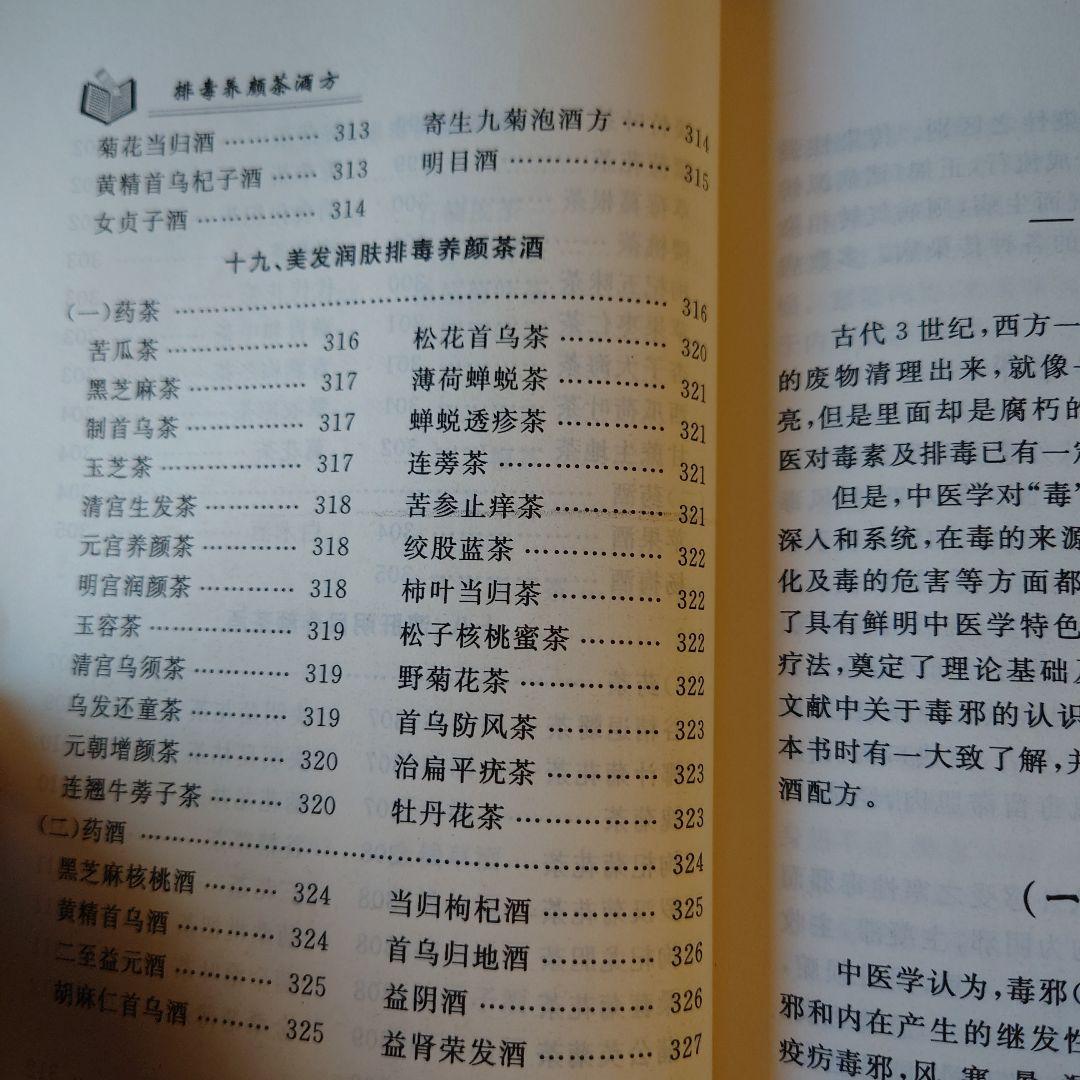 排毒养颜茶酒方
菊花当归酒 ………… 313
黄精首乌杞子酒 …… 313
女贞子酒 …………… 314
寄生九菊泡酒方 …… 314
明目酒 ……………… 315
十九、美发润肤排毒养颜茶酒
(一)药茶 …………………………………………… 316
苦瓜茶 ……………… 316
黑芝麻茶 …………… 317
制首乌茶 …………… 317
玉芝茶 ……………… 317
清宫生发茶 ………… 318
元宫养颜茶 ………… 318
明宫润颜茶 ………… 318
玉容茶 ……………… 319
清宫乌须茶 ………… 319
乌发还童茶 ………… 319
元朝增颜茶 ………… 320
连翘牛蒡子茶 ……… 320
松花首乌茶 ………… 320
薄荷蝉蜕茶 ………… 321
蝉蜕透疹茶 ………… 321
连蒡茶 ……………… 321
苦参止痒茶 ………… 321
绞股蓝茶 …………… 322
柿叶当归茶 ………… 322
松子核桃蜜茶 ……… 322
野菊花茶 …………… 322
首乌防风茶 ………… 323
治扁平疣茶 ………… 323
牡丹花茶 …………… 323
(二)药酒 …………………………………………… 324
黑芝麻核桃酒 ……… 324
黄精首乌酒 ………… 324
二至益元酒 ………… 325
胡麻仁首乌酒 ……… 325
当归枸杞酒 ………… 325
首乌归地酒 ………… 326
益阴酒 ……………… 326
益肾荣发酒 ………… 327
一
古代3世纪,西方一
的废物清理出来,就像
亮,但是里面却是腐朽的
医对毒素及排毒已有一定
但是,中医学对“毒”
深入和系统,在毒的来源
化及毒的危害等方面都
了具有鲜明中医学特色
疗法,奠定了理论基础
文献中关于毒邪的认识
本书时有一大致了解,并
酒配方。
(一
中医学认为,毒邪(
邪和内在产生的继发性
疫疠毒邪,风 寒 暑